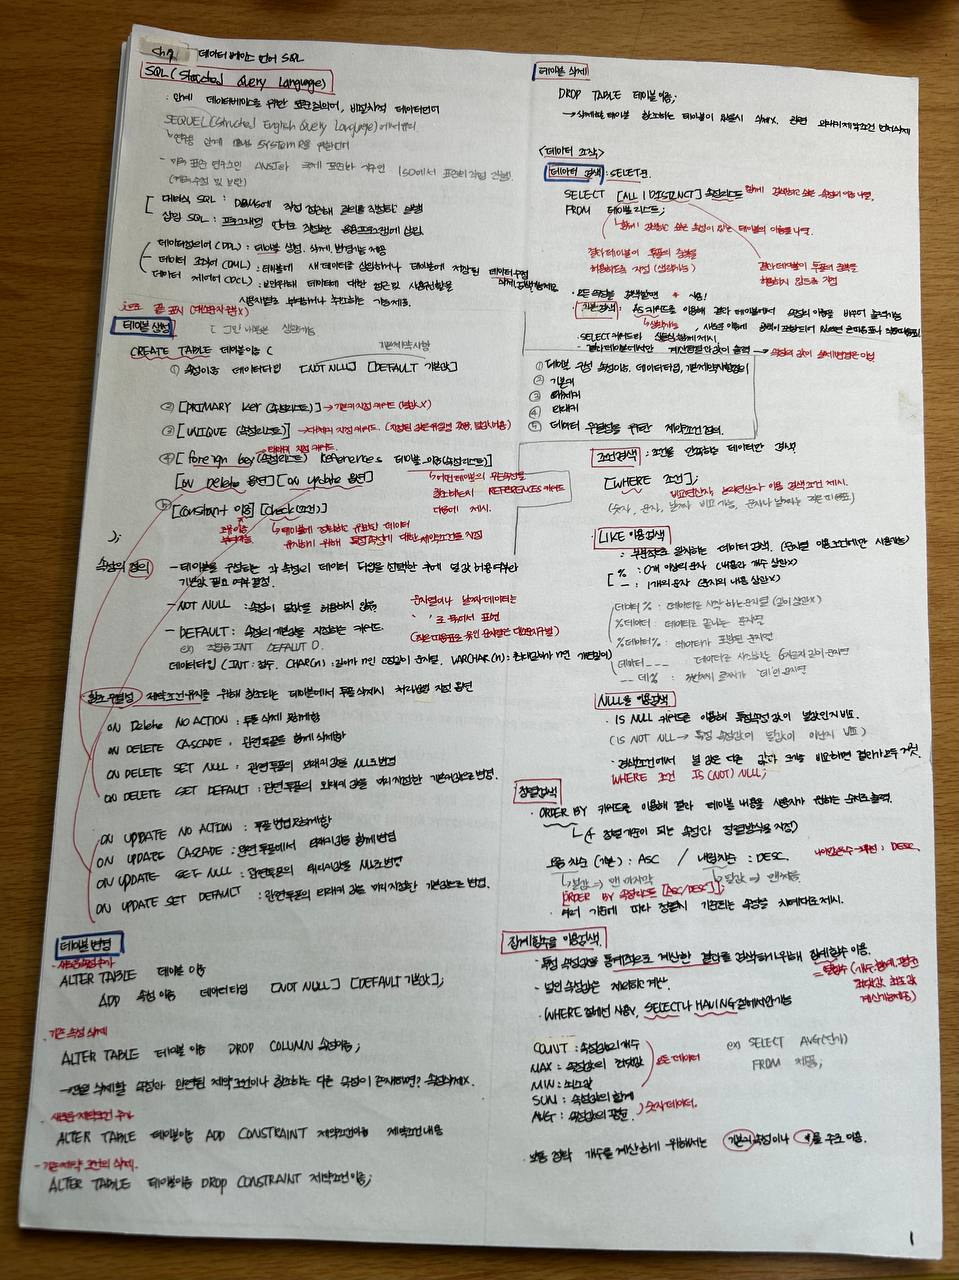 ch7 데이터베이스 언어 SQL
SQL (Structured Query Language)
: 관계 데이터베이스를 위한 표준질의어, 비절차적 데이터언어
SEQUEL(Structured English Query Language)에서 유래
연구용 관계 DBMS SYSTEM R을 위한 언어
- 미국 표준 연구소인 ANSI와 국제 표준화 기구인 ISO에서 표준화 작업 진행.
(계속 수정 및 보완)
대화식 SQL : DBMS에 직접 접근해 질의를 작성하고 실행
삽입 SQL : 프로그래밍 언어로 작성한 응용프로그램에 삽입
- 데이터정의어 (DDL) : 테이블 생성. 삭제, 변경기능 제공
- 데이터 조작어 (DML) : 테이블에 새 데이터를 삽입하거나 테이블에 저장된 데이터 수정, 삭제, 검색 기능제공
데이터 제어어 (DCL) : 보안위해 데이터에 대한 접근 및 사용권한을
사용자별로 부여하거나 취소하는 기능제공.
;으로 끝 표시 (대소문자 구분X)
테이블 생성
[ 그인 내용은 생략가능
CREATE TABLE 테이블이름 (
기본제약사항
① 속성이름 데이터타입 [NOT NULL] [DEFAULT 기본값]
② [PRIMARY key (속성리스트)] → 기본키지정 키워드 (널값X)
③ [UNIQUE (속성리스트)] → 대체키 지정 키워드.
→ 외래키 지정 키워드
④ [foreign key (속성리스트) References 테이블-이름(속성리스트)]
[on Delete 옵션] [on update 옵션]
어떤 테이블의 무슨속성을
참조하는지 REFERENCES 키워드
다음에 제시.
⑤ [constraint 이름] [check (조건)]
→ 테이블에 정확하고 유효한 데이터
유지하기 위해 특정 속성에 대한 제약조건을 지정
);
속성의 정의
- 테이블을 구성하는 각 속성의 데이터 타입을 선택한 후에 널 값 허용여부와
기본값 필요 여부 결정.
- NOT NULL : 속성이 널값을 허용하지 않음
- DEFAULT : 속성의 기본값을 지정하는 키워드
ex) 적립금 INT DEFAULT 0.
문자열이나 날짜 데이터는
' '로 묶어서 표현
(작은 따옴표로 묶인 문자열은 대소문자구별)
데이터타입 (INT : 정수. CHAR(n) : 길이가 n인 고정길이 문자열. VARCHAR(n) : 최대길이가 n인 가변길이)
참조 무결성 제약조건 유지를 위해 참조되는 테이블에서 투플 삭제시 처리방법 지정 옵션
ON Delete NO ACTION : 투플 삭제 못하게함
ON DELETE CASCADE : 관련투플을 함께 삭제함
ON DELETE SET NULL : 관련투플의 외래키 값을 NULL로 변경
ON DELETE SET DEFAULT : 관련투플의 외래키 값을 미리 지정한 기본값으로 변경.
ON UPDATE NO ACTION : 투플 변경 못하게함
ON UPDATE CASCADE : 관련 투플에서 외래키 값을 함께 변경
ON UPDATE SET NULL : 관련투플의 외래키 값을 NULL로 변경
ON UPDATE SET DEFAULT : 관련투플의 외래키 값을 미리 지정한 기본값으로 변경.
테이블 변경
· 새로운 속성 추가
ALTER TABLE 테이블 이름
ADD 속성 이름 데이터타입 [NOT NULL] [DEFAULT 기본값];
· 기존 속성 삭제
ALTER TABLE 테이블 이름 DROP COLUMN 속성이름;
→ 만일 삭제할 속성과 관련된 제약조건이나 참조하는 다른 속성이 존재하면? 속성삭제X.
· 새로운 제약조건 추가
ALTER TABLE 테이블이름 ADD CONSTRAINT 제약조건이름 제약조건내용
- 기존 제약 조건의 삭제.
ALTER TABLE 테이블이름 DROP CONSTRAINT 제약조건이름;
테이블 삭제
DROP TABLE 테이블 이름;
→ 삭제할 테이블 참조하는 테이블이 있을시 삭제X. 관련 외래키 제약조건 먼저 삭제
<데이터 조작>
데이터 검색 : SELECT문.
SELECT [ALL | DISTINCT] 속성리스트 함께 검색하고 싶은 속성의 이름 나열.
FROM 테이블 리스트;
검색하고 싶은 속성이 있는 테이블의 이름을 나열.
결과 테이블이 투플의 중복을
허용하도록 지정 (생략가능)
결과 테이블이 투플의 중복을
허용하지 않도록 지정
· 모든 속성을 검색할땐 * 사용!
기본검색 : AS 키워드를 이용해 결과 테이블에서 속성의 이름을 바꾸어 출력가능
생략가능
· SELECT 키워드와 산술식 함께 제시.
- 결과 테이블에서만 계산된 결과 값이 출력 → 속성의 값이 실제 변경은 아님
① 테이블 구성 속성이름. 데이터타입, 기본제약사항정의
② 기본키
③ 대체키
④ 외래키
⑤ 데이터 무결성을 위한 제약조건 정의.
조건검색 : 조건을 만족하는 데이터만 검색
[WHERE 조건];
비교연산자, 논리연산자 이용 검색조건 제시.
(숫자, 문자, 날짜 비교 가능, 문자나 날짜는 작은 따옴표)
LIKE 이용검색
: 부분적으로 일치하는 데이터 검색. (문자열 이용 조건에만 사용가능)
% : 0개 이상의 문자 (내용과 개수 상관X)
_ : 1개의 문자 (문자의 내용 상관X)
데이터% : 데이터로 시작하는 문자열 (길이 상관X)
%데이터 : 데이터로 끝나는 문자열
%데이터% : 데이터가 포함된 문자열
데이터___ 데이터로 시작하는 6글자 길이 문자열
__데% : 3번째 글자가 '데'인 문자열
NULL을 이용검색
· IS NULL 키워드를 이용해 특정속성 값이 널값인지 비교.
(IS NOT NULL → 특정 속성값이 널값이 아닌지 비교)
· 검색조건에서 널 값은 다른 값과 크기를 비교하면 결과가 모두 거짓
WHERE 조건 IS (NOT) NULL;
정렬검색
· ORDER BY 키워드를 이용해 결과 테이블 내용을 사용자가 원하는 순서로 출력.
(+ 정렬 기준이 되는 속성과 정렬방식을 지정)
오름 차순 (기본) : ASC / 내림차순 : DESC.
널값 ⇒ 맨 마지막
널값 ⇒ 맨처음
ORDER BY 속성리스트 [ASC/DESC];
· 여러 기준에 따라 정렬시 기준되는 속성을 차례대로 제시.
집계함수를 이용검색.
· 특정 속성값을 통계적으로 계산한 결과를 검색하기위해 집계함수 이용.
= 열함수 (개수, 합계, 평균
최댓값, 최소값
계산기능제공)
- 널인 속성값은 제외하고 계산.
· WHERE 절에선 사용X, SELECT나 HAVING 절에서만가능
COUNT : 속성값의 개수
MAX : 속성값의 최댓값
MIN : 최소값
모든 데이터
SUM : 속성값의 합계
AVG : 속성값의 평균
숫자 데이터.
ex) SELECT AVG(단가)
FROM 제품;
· 보통 정확 개수를 계산하기 위해서는 기본키 속성이나 *를 주로 이용.
1